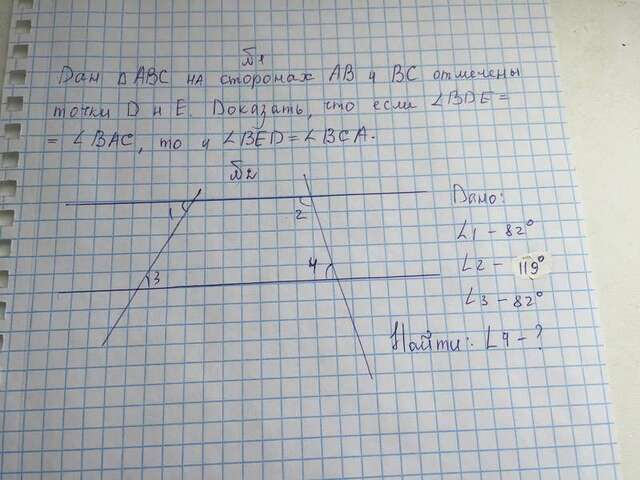 №1
Дан △ABC на сторонах AB и BC отмечены
точки D и E. Доказать, что если ∠BDE=
= ∠BAC, то и ∠BED=∠BCA.
№2
1
2
3
4
Дано:
∠1 - 82°
∠2 - 119°
∠3 - 82°
Найти: ∠4 - ?